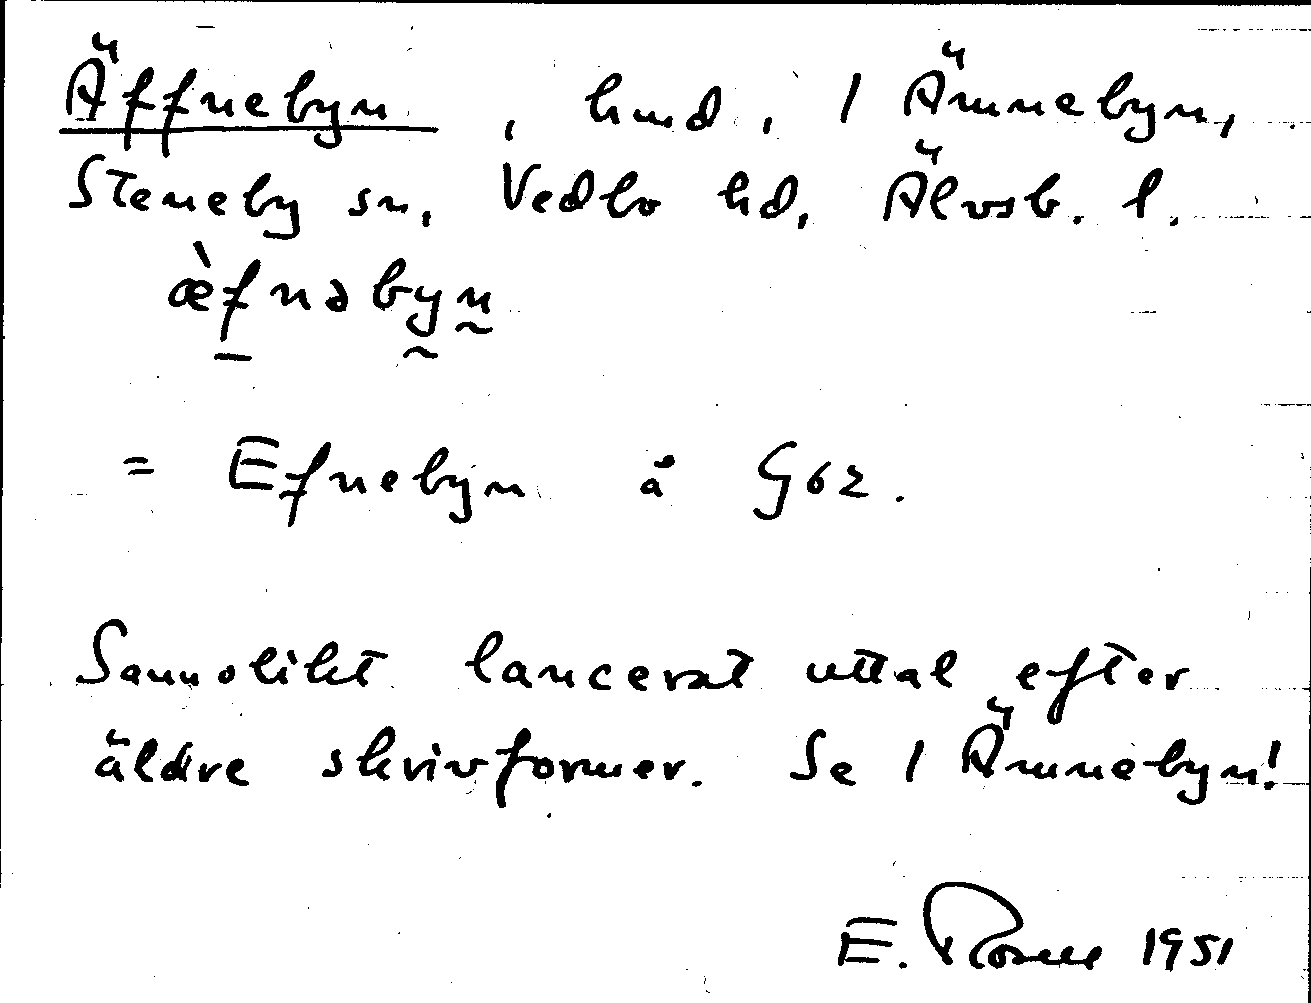 Äffnebyn, hmd, 1 Ämnebyn,
Steneby sn, Vedbo hd, Älvsb. l.
æ̀fnəbyn
= Efnebyn å G62.
Sannolikt lancerat uttal efter
äldre skrivformer. Se 1 Ämnebyn!
E. 1951